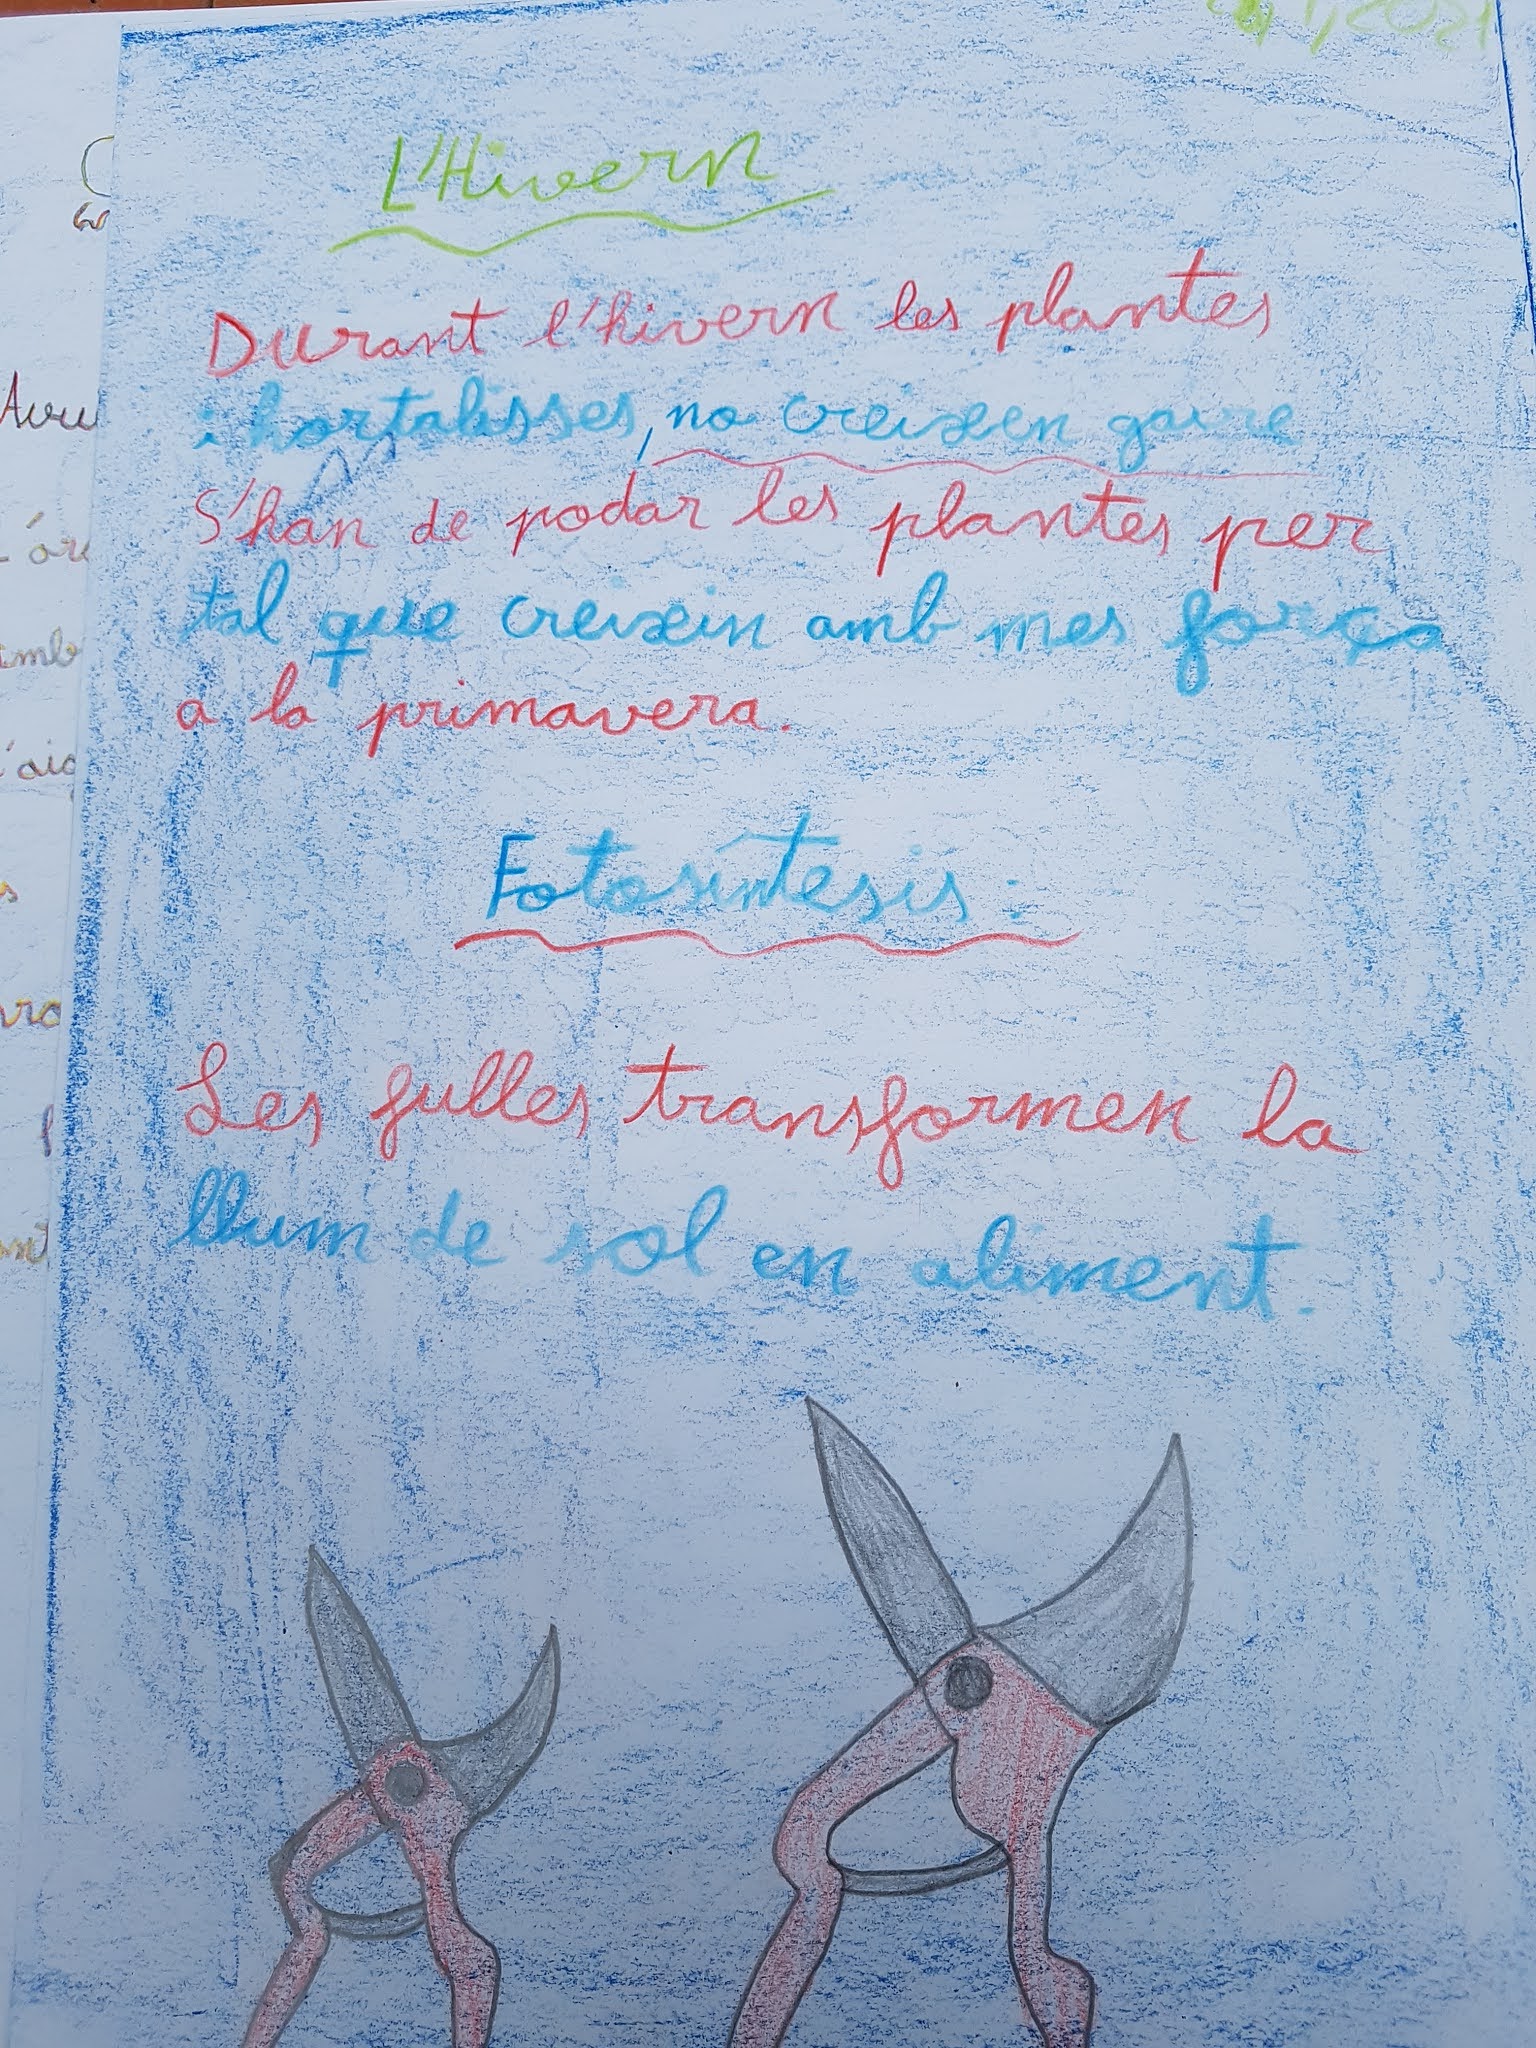 L'Hivern
Durant l'hivern les plantes
i hortalisses, no creixen gaire
S'han de podar les plantes per
tal que creixin amb mes força
a la primavera.
Fotosíntesis:
Les fulles transformen la
llum de sol en aliment.